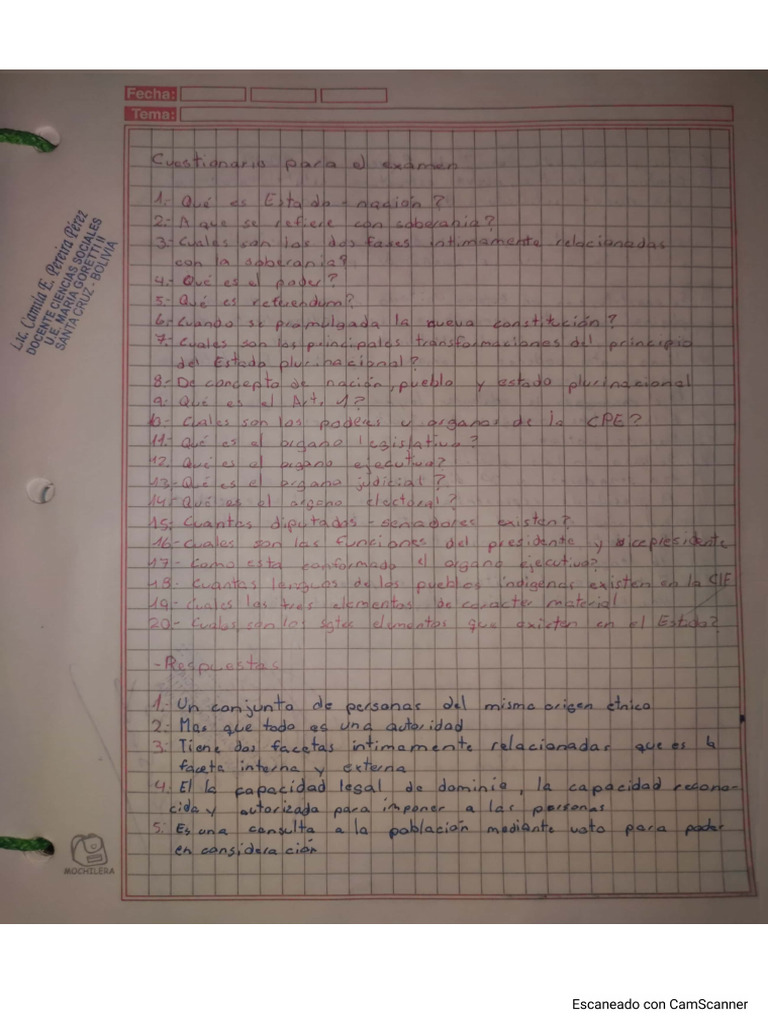 Fecha:
Tema:
Lic. Camila E. Pereira Pérez
DOCENTE CIENCIAS SOCIALES
U.E. MARIA GORETTI II
SANTA CRUZ - BOLIVIA
Cuestionario para el examen
1.- Qué es Estado - nación?
2.- A que se refiere con soberania?
3.- Cuales son las dos fases intimamente relacionadas
con la soberania?
4.- Qué es el poder?
5.- Qué es referendum?
6.- Cuando se promulgada la nueva constitución?
7.- Cuales son los principales transformaciones del principio
del Estado plurinacional?
8.- De concepto de nación, pueblo y estado plurinacional
9.- Qué es el Art. 1?
10.- Cuales son los poderes u organos de la CPE?
11.- Qué es el organo legislativo?
12. Qué es el organo ejecutivo?
13.- Qué es el organo judicial?
14.- Qué es el organo electoral?
15.- Cuantos diputados - señadores existen?
16.- Cuales son las funciones del presidente y vicepresidente
17.- Como esta conformado el organo ejecutivo?
18.- Cuantas lenguas de los pueblos indigenas existen en la
19.- Cuales los tres elementos de caracter material
20.- Cuales son los sgtes elementos que existen en el Estado?
- Respuestas
1.- Un conjunto de personas del mismo origen etnico
2.- Mas que todo es una autoridad
3.- Tiene dos facetas intimamente relacionadas que es la
faceta interna y externa
4. El la capacidad legal de dominio, la capacidad recono-
cida y autorizada para imponer a las personas
5.- Es una consulta a la población mediante voto para poder
en consideración
MOCHILERA
Escaneado con CamScanner